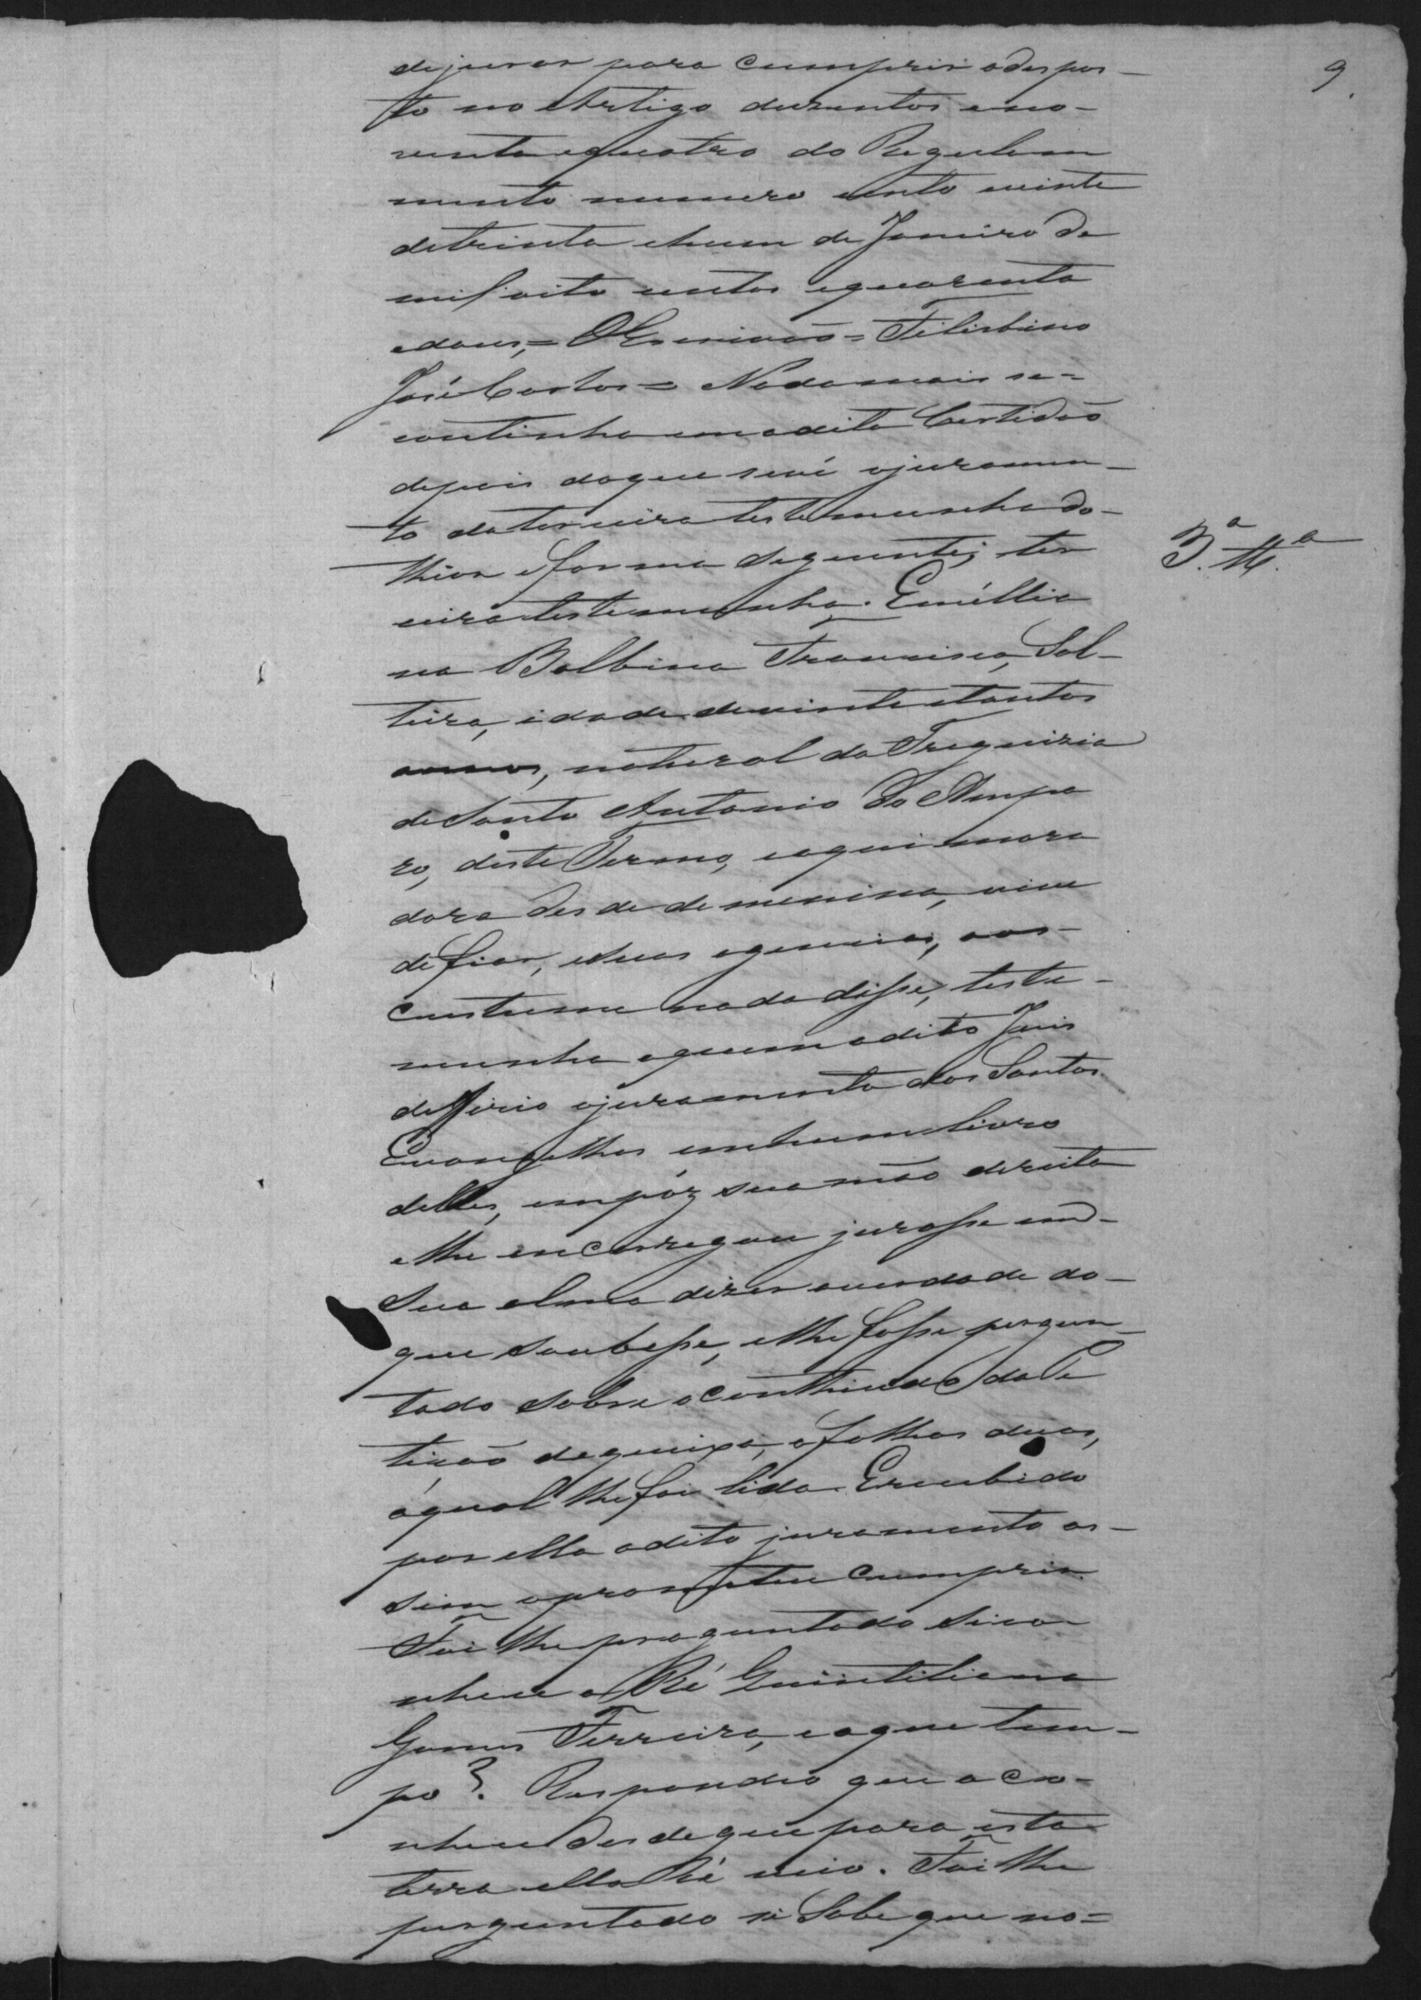 9
de jurar para cumprir o dispos-
to no Artigo duzentos e no-
venta e quatro do Regulam
mento numero cento e vinte
de trinta e hum de Janeiro de
mil oito centos e quarenta
e dous, = O Escrivaõ = Filisbino
José Carlos = Nada mais se =
continha em a dita Certidaõ
depois do que se vê o juramen-
to da terceira testemunha do
thior e forma seguinte; ter
ceira testemunha. Emillia
na Balbina Francisca, Sol-
teira, idade de vinte e tantos
annos, natural da Freguizia
de Santo Antonio do Ampa
ro, deste Termo, e aqui mora
dora desde de menina, vive
de fiar, e suas agencias, aos
custume nada disse, teste-
munha a quem o dito Juis
defferio o juramento dos Santos
Evangelhos em hum livro
delles, em q pôz sua maõ direita
e lhe encarregou jurasse em
sua alma dizer a verdade do
que soubesse, e lhe fosse pergun-
tado sobre o conthiudo da Pe
tiçaõ de queixa, a folhas duas,
a qual lhe foi lida. E recebido
por ella o dito juramento as-
sim o prometteu cumprir.
Foi lhe preguntado si co-
nhece a Ré Quintiliana
Gomes Ferreira, e a que tem-
po? Respondeo que a co-
nhece desde que para esta
terra ella Ré veio. Foi lhe
perguntado si sabe que no=
3.ª Tt.ª